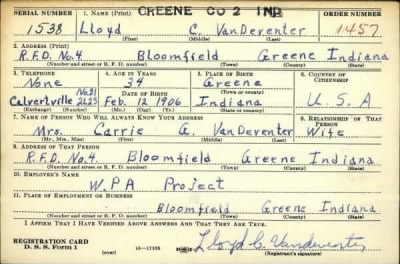 GREENE CO 2 IND
SERIAL NUMBER 1. NAME (Print) ORDER NUMBER
1538 Lloyd C. VanDeventer 1457
(First) (Middle) (Last)
2. ADDRESS (Print)
R.F.D. No.4. Bloomfield Greene Indiana
(Number and street or R. F. D. number) (Town) (County) (State)
3. TELEPHONE 4. AGE IN YEARS 5. PLACE OF BIRTH 6. COUNTRY OF CITIZENSHIP
None 34 Greene
No21 DATE OF BIRTH (Town or county)
Calvertville 2L23 Feb. 12 1906 Indiana U.S.A
(Exchange) (Number) (Mo.) (Day) (Yr.) (State or country)
7. NAME OF PERSON WHO WILL ALWAYS KNOW YOUR ADDRESS 8. RELATIONSHIP OF THAT PERSON
Mrs. Carrie G. VanDeventer Wife
(Mr., Mrs., Miss) (First) (Middle) (Last)
9. ADDRESS OF THAT PERSON
R.F.D. No.4. Bloomfield Greene Indiana
(Number and street or R. F. D. number) (Town) (County) (State)
10. EMPLOYER'S NAME
W.P.A Project
11. PLACE OF EMPLOYMENT OR BUSINESS
Bloomfield Greene Indiana
(Number and street or R. F. D. number) (Town) (County) (State)
I AFFIRM THAT I HAVE VERIFIED ABOVE ANSWERS AND THAT THEY ARE TRUE.
REGISTRATION CARD
D. S. S. Form 1 16—17105 Lloyd C. Vandeventer
(Registrant's signature)